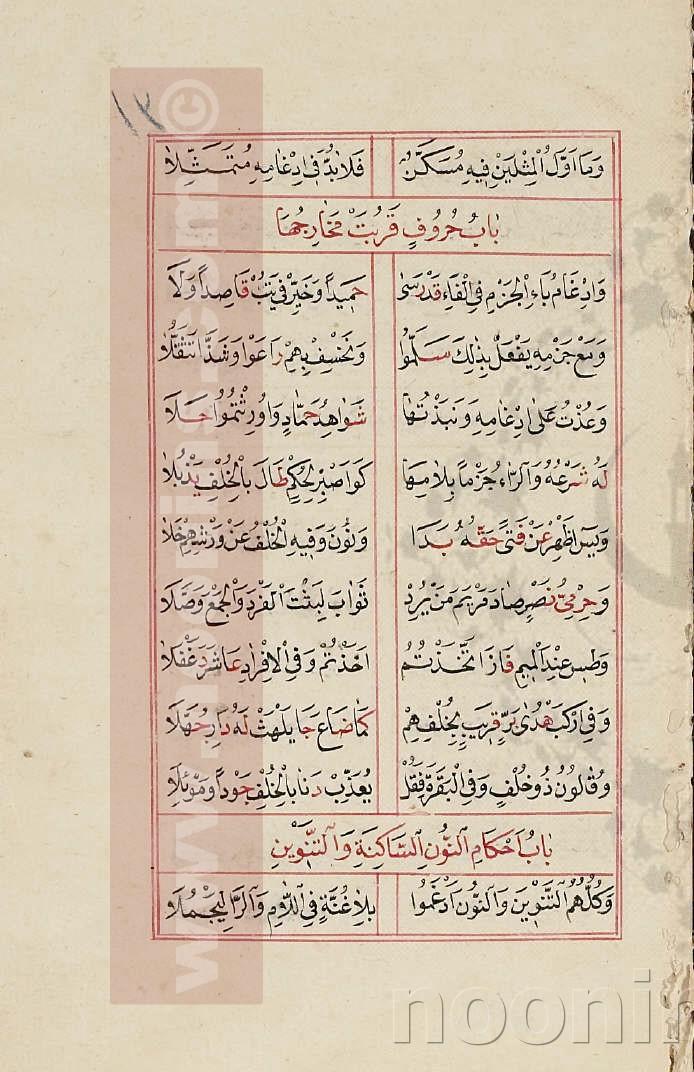 ١٣
وَمَا اَوَّلُ الْمِثْلَيْنِ فِيهِ مُسَكَّنٌ فَلَا بُدَّ فِى اِدْغَامِهِ مُتَمَثِّلَا
بَابُ حُرُوفٍ قَرُبَتْ مَخَارِجُهَا
وَاِدْغَامُ بَاءِ الْجَزْمِ فِى الْفَاءِ قَدْ رَسَى حَمِيداً وَخَيِّرْ فِى يَتُبْ قَاصِداً وَلَا
وَمَعْ جَزْمِهِ يَفْعَلْ بِذٰلِكَ سَلَّمُوا وَنَخْسِفْ بِهِمْ رَاعَوْا وَشَذَّا تَثَقُّلَا
وَعُذْتُ عَلَى اِدْغَامِهِ وَنَبَذْتُهَا شَوَاهِدُ حَمَّادٍ وَاُورِثْتُمُوا حَلَا
لَهُ شَرْعُهُ وَالرَّاءُ جَزْماً بِلَامِهَا كَوَاصْبِرْ لِحُكْمٍ طَالَ بِالْخُلْفِ يَذْبُلَا
وَيٰسٓ اَظْهِرْ عَنْ فَتًى حَقُّهُ بَدَا وَنُونَ وَفِيهِ الْخُلْفُ عَنْ وَرْشِهِمْ خَلَا
وَحِرْمِىُّ نَصْرٍ صَادَ مَرْيَمَ مَنْ يُرِدْ ثَوَابَ لَبِثْتَ الْفَرْدَ وَالْجَمْعَ وَصَّلَا
وَطٰسٓ عِنْدَ الْمِيمِ فَازَ اتَّخَذْتُمُ اَخَذْتُمْ وَفِى الْاِفْرَادِ عَاشَرَ دَغْفَلَا
وَفِى ارْكَبْ هُدٰى بَرٍّ قَرِيبٍ بِخُلْفِهِمْ كَمَا ضَاعَ جَا يَلْهَثْ لَهُ دَارِ جُهَّلَا
وَقَالُونُ ذُو خُلْفٍ وَفِى الْبَقَرَةْ فَقُلْ يُعَذِّبْ دَنَا بِالْخُلْفِ جَوْداً وَمَوْئِلَا
بَابُ اَحْكَامِ النُّونِ السَّاكِنَةِ وَالتَّنْوِينِ
وَكُلُّهُمُ التَّنْوِينَ وَالنُّونَ اَدْغَمُوا بِلَا غُنَّةٍ فِى اللَّامِ وَالرَّا لِيَجْمُلَا